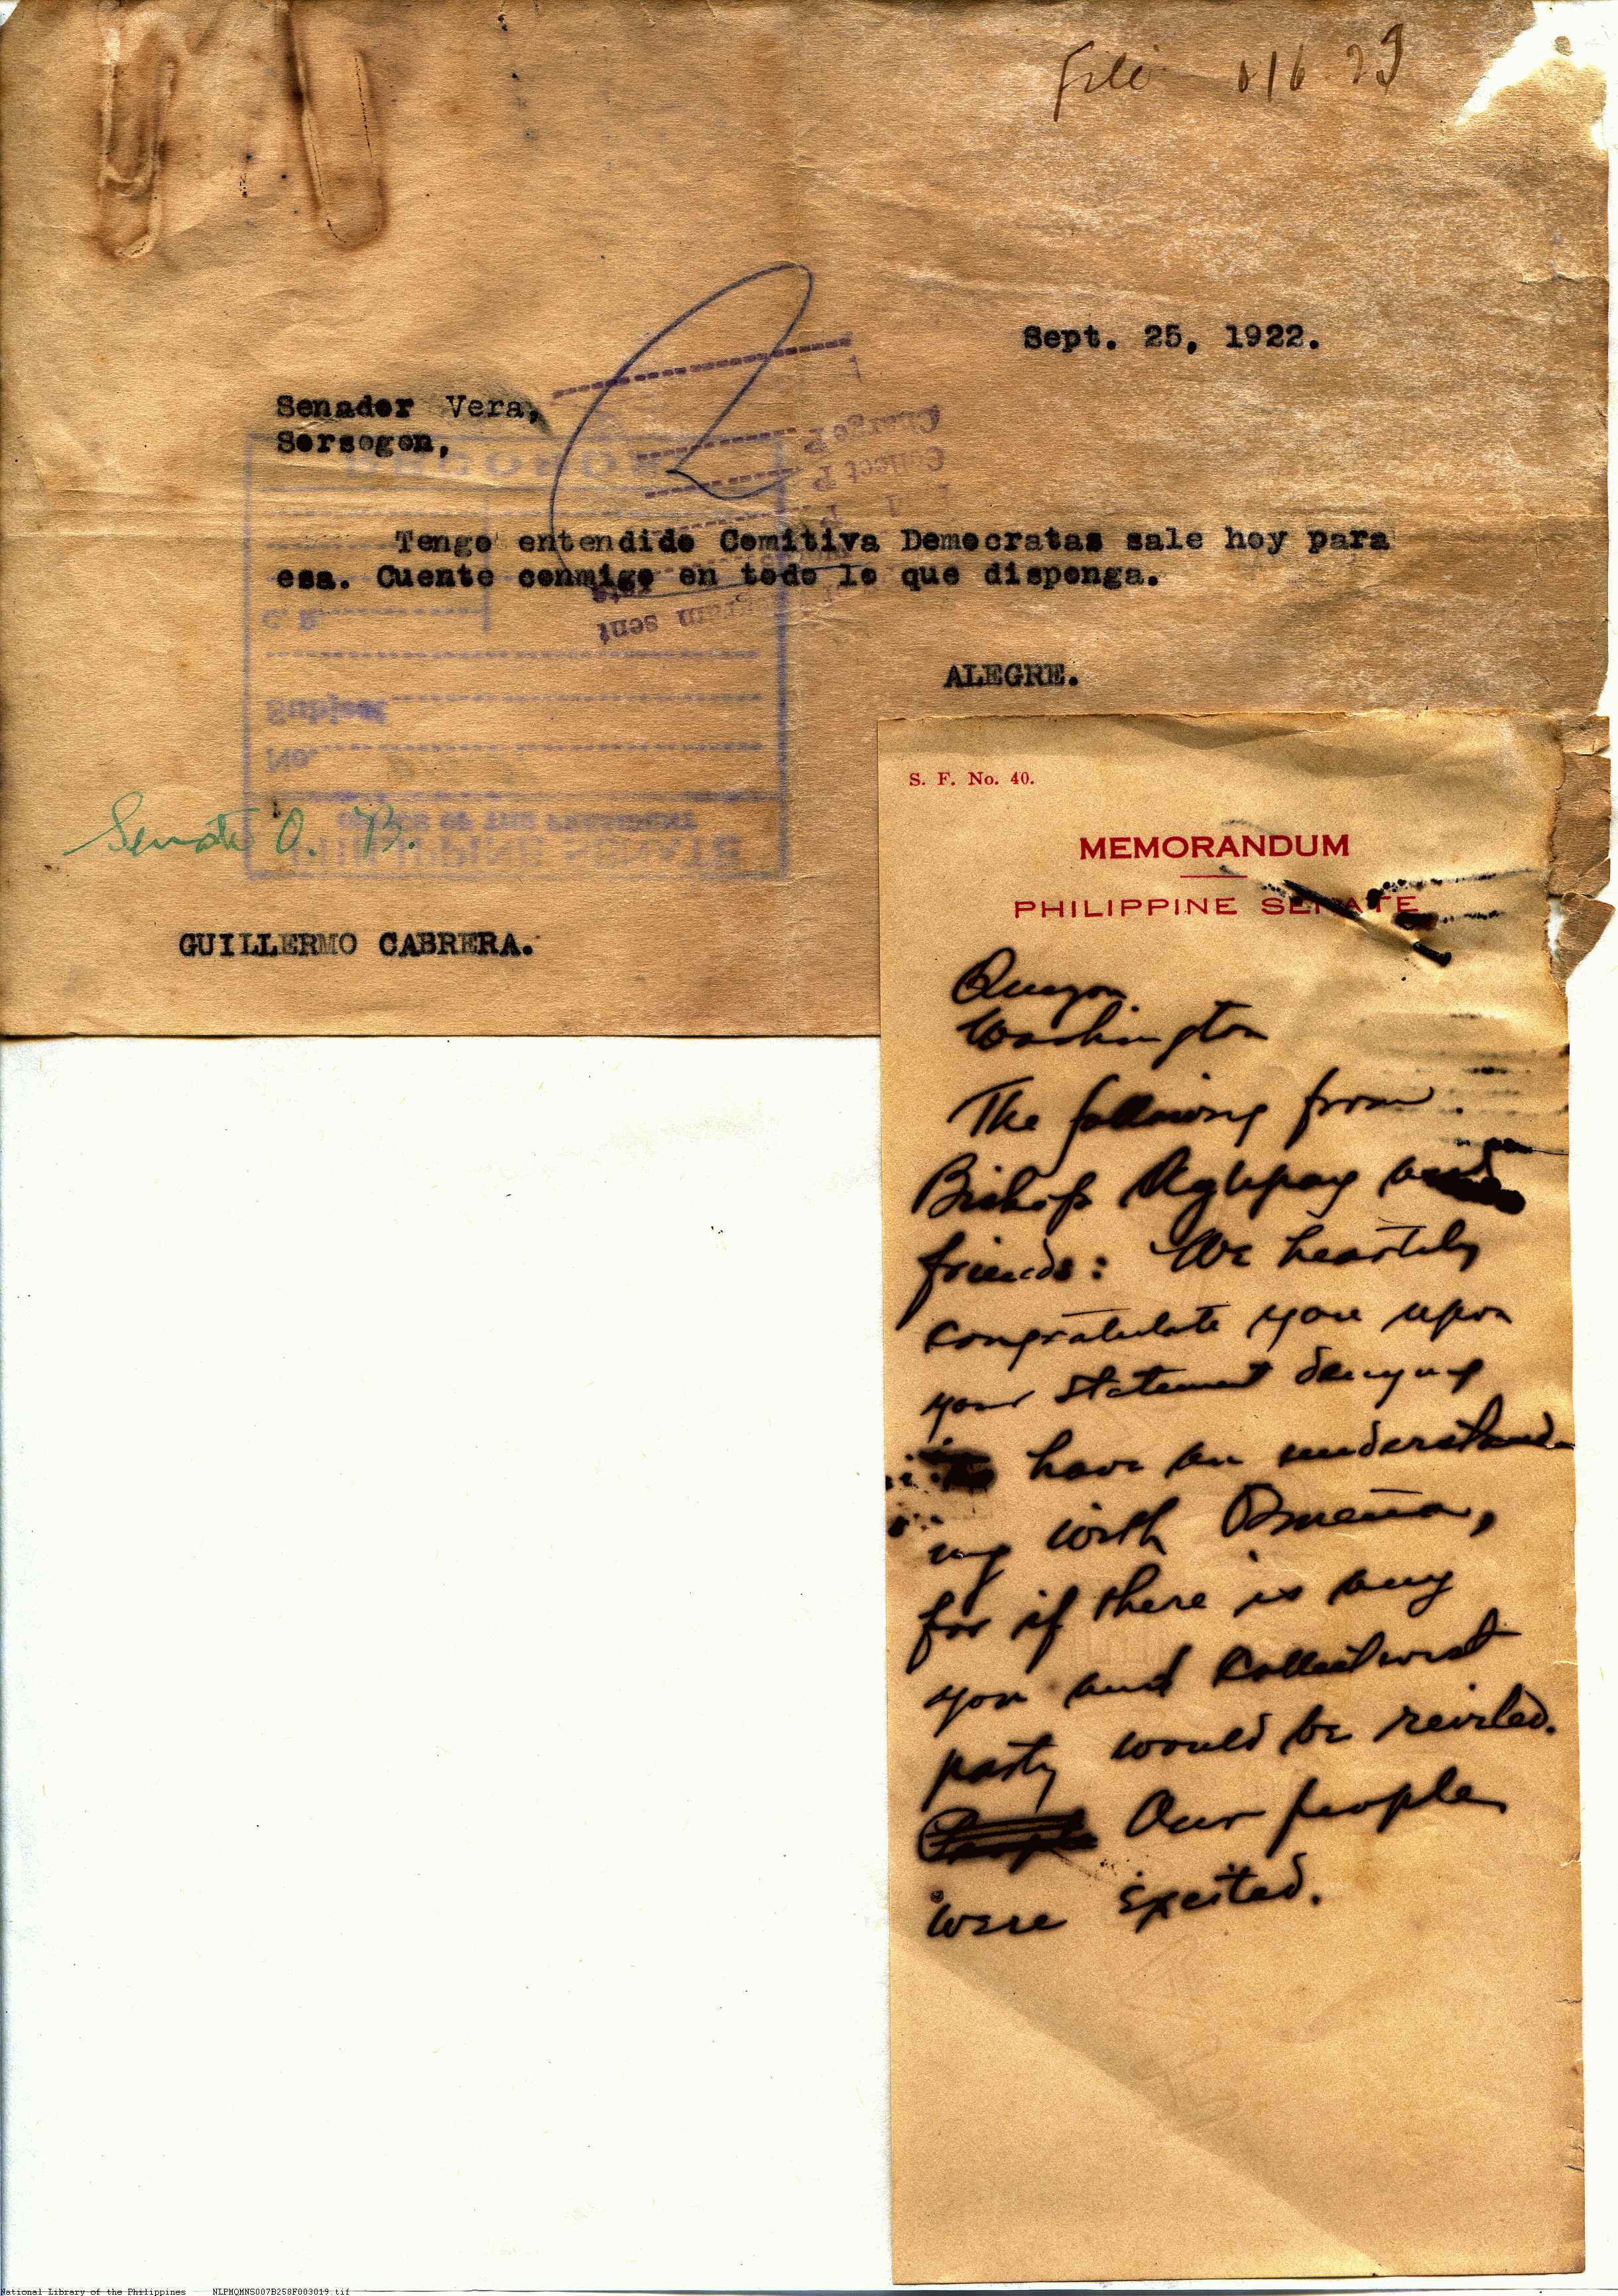 File 8/6 23
Sept. 25, 1922.
Senador Vera,
Sorsogon,
Tengo entendido Comitiva Democratas sale hoy para
esa. Cuente conmigo en todo lo que disponga.
ALEGRE.
Senate O. B.
GUILLERMO CABRERA.
Charge P
Collect P
sent
C. R.
Subject
No.
OFFICE OF THE PRESIDENT
PHILIPPINE SENATE
S. F. No. 40.
MEMORANDUM
PHILIPPINE SENATE
Quezon
Washington
The following from
Bishop Aglipay and
friends: We heartily
congratulate you upon
your statement denying
have an understand-
ing with Osmeña,
for if there is any
you and Collectivist
party would be reviled.
People Our people
were excited.
National Library of the Philippines NLPMQMNS007B258F003019.tif